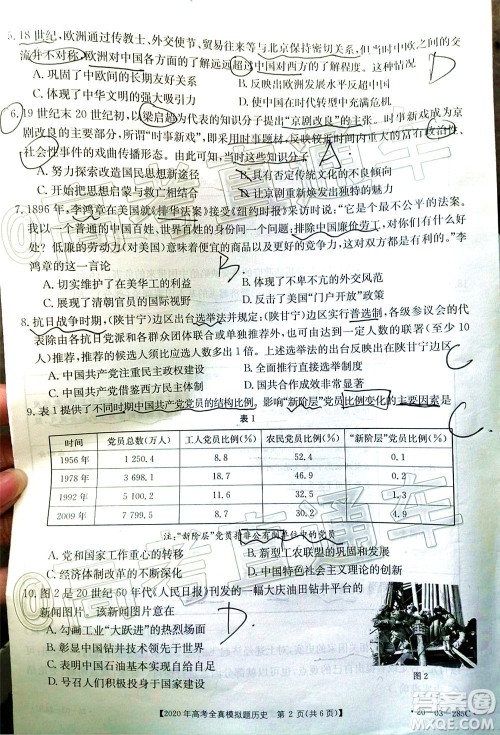 5. 18世纪,欧洲通过传教士、外交使节、贸易往来等与北京保持密切关系,但中欧之间的交流并不对称,欧洲对中国各方面的了解远远超过中国对西方的了解程度。这种情况 D
A. 巩固了中欧间的长期友好关系 B. 欧洲发展水平反超中国
C. 体现了中华文明的强大吸引力 D. 使中国在时代转型中落伍
6. 19世纪末20世纪初,以梁启超为代表的知识分子提出“京剧改良”的主张。时事新戏成为京剧改良的主要部分,所谓“时事新戏”,即采用时事题材,反映较近时间内重大的富有政治性、社会性事件的戏曲传播形态。当时这些知识分子 A
A. 努力探索改造国民思想新途径 B. 旨在否定传统文化的不良倾向
C. 开始把思想启蒙与救亡相结合 D. 让京剧重新焕发出其艺术魅力
7. 1896年,李鸿章在美国就《排华法案》接受《纽约时报》采访时说:“它是不最不公平的法案。
低廉的劳动力(对美国)意味着更便宜的商品以及更剧烈的竞争,这对双方都有好处。”李
鸿章的这一言论 B
A. 切实维护了在美华工的利益 B. 体现了不卑不亢的外交风范
C. 展现了清朝官员的国际视野 D. 助推了美国“门户开放”政策
8. 抗日战争时期,(陕甘宁)边区出台选举法,(陕甘宁)边区实行普选制,各级参议会的代
表除由各抗日党派和各群众团体联合或单独推举外,一定数量的人数的联署(至少10
人)推荐的候选人须达应选比例亦可参加竞选。上述选举法的出台反映出在陕甘宁边区 C
A. 中国共产党开始局部执政 B. 人民民主制度发展
C. 中国共产党借鉴西方民主 D. 统一战线取得显著成效
9. 表1提供了不同时期中国共产党党员的结构比例。影响“新阶层”党员比例变化的主要因素是 C
表1
时间 党员总数(万人) 工人党员比例(%) 农民党员比例(%) “新阶层”党员比例(%)
1956年 1 250.4 8.8 52.4 0
1978年 3 698.1 18.7 46.9 0
1992年 5 100.2 32.2 34.5 0.2
2009年 7 799.5 31.7 30.8 3.4
注:“新阶层”党员指非公有制单位中的党员
A. 党和国家工作重心的转移 B. 新型工农联盟的巩固与发展
C. 经济体制改革的不断深入 D. 中国特色社会主义理论的创新
10. 图2是20世纪60年代《人民日报》刊发的一幅大庆油田钻井平台的
新闻图片。该新闻图片意在 D.
A. 勾画工业“大跃进”的热烈场面
B. 彰显中国钻井技术领先于世界
C. 表明中国石油基本实现自给自足
D. 宣扬艰苦奋斗的创业精神
图2
【2020年高考全真模拟题历史 第2页(共6页)】
·20-03-285C·
@高考直通车
答案圈